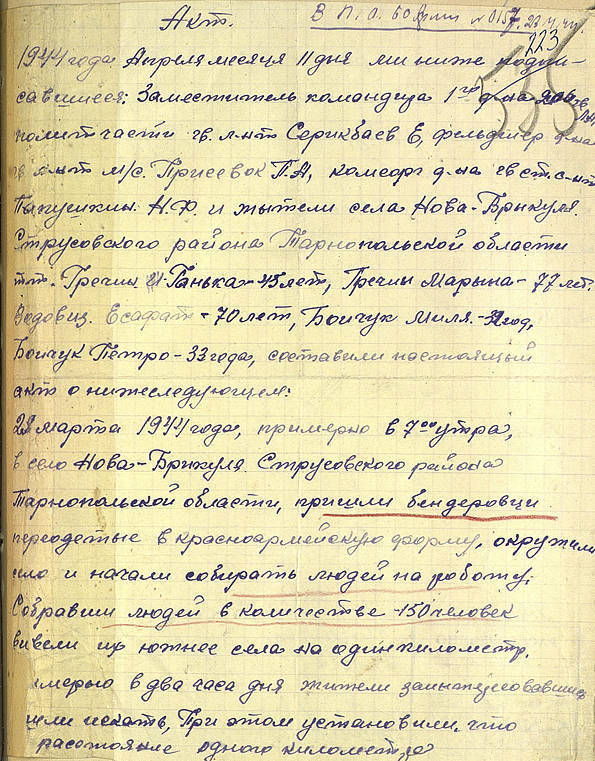 Акт.
В П. О. 60 Армии № 0157, 23.4.44.
223
1944 года Апреля месяца 11 дня ми ниже подпи-
савшиеся: Заместитель командира 1го д-на
полит части гв. л-нт Серикбаев Е, фельдшер д-на
гв л-нт м/с. Присевок П.А, комсорг д-на гв ст. с-нт
Папушкин. Н.Ф. и жытели села Нова-Брыкуля.
Струсовского района Тарнопольской области
тт. Гречин Ганька - 45 лет, Гречин Марына - 77 лет.
Водовиз. Есафат - 70 лет, Бойчук Миля. - 32 год,
Бойчук Петро - 33 года, составили настоящий
акт о нижеследующем:
28 марта 1944 года, примерно в 7°° утра,
в село Нова-Брикуля. Струсовского района
Тарнопольской области, пришли бендеровци
переодетые в красноармейскую форму, окружили
село и начали собирать людей на роботу.
Собравши людей в количестве -150 человек
вивели их южнее села на один километр.
имерью в два часа дня жители
шли искать, При этом установили, что
расстояние одного километра